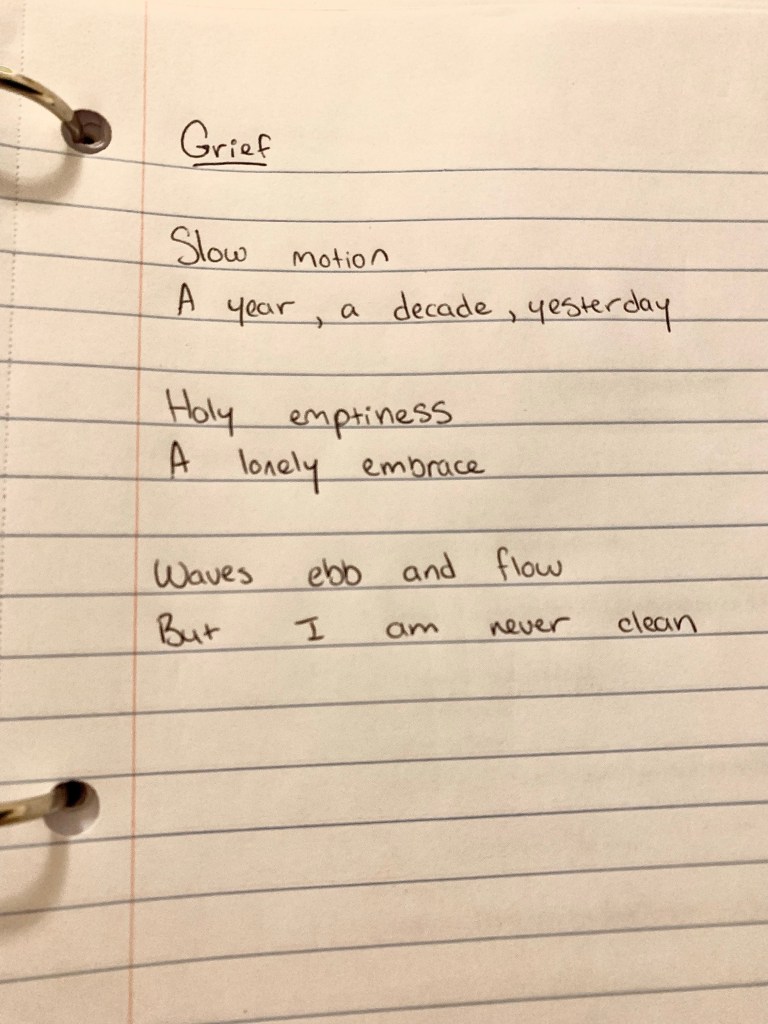 Grief
Slow motion
A year, a decade, yesterday
Holy emptiness
A lonely embrace
Waves ebb and flow
But I am never clean